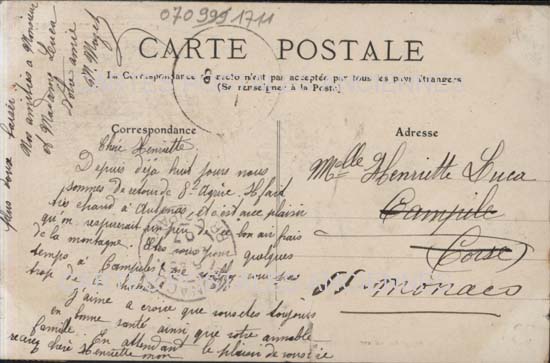 070 999 1711
CARTE POSTALE
La Correspondance au recto n'est pas acceptée par tous les pays étrangers
(Se renseigner à la Poste)
Correspondance
Adresse
Chère Henriette
Depuis déjà huit jours nous
sommes de retour de St Agrève. Il fait
très chaud à Aubenas, et c'est avec plaisir
qu'on respirerait un peu de ce bon air frais
de la montagne. Etes vous pour quelques
temps à Campile
trop de la
J'aime a croire que vous êtes toujours
en bonne santé ainsi que votre aimable
famille. En attendant le plaisir de vous lire
recevez chère Henriette mon
plus doux baiser.
Mes amitiés a Monsieur
et Madame Luca
Votre amie
Mlle Henriette Luca
Campile
Corse
Monaco